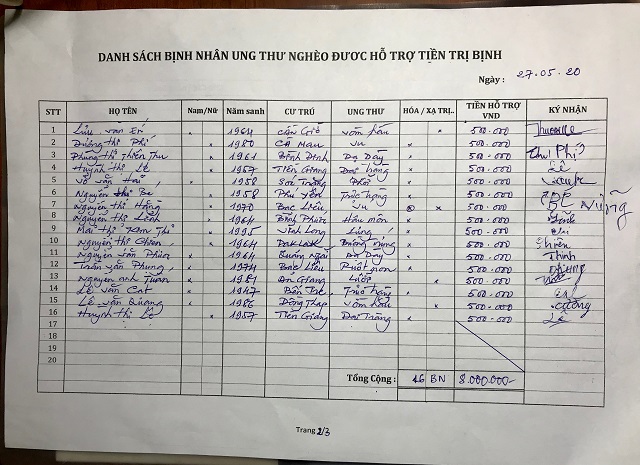 DANH SÁCH BỊNH NHÂN UNG THƯ NGHÈO ĐƯƠC HỖ TRỢ TIỀN TRỊ BỊNH
Ngày : 27.05.20
STT HỌ TÊN Nam/Nữ Năm sanh CƯ TRÚ UNG THƯ HÓA / XẠ TRỊ.. TIỀN HỖ TRỢ VND KÝ NHẬN
1 Lưu văn x 1964 Cần Giờ vòm hầu x 500.000
2 Dương thị Phí x 1980 CÀ MAU Vú x 500.000 Phí
3 Phùng thị Thiên Thu x 1961 Bình Định Dạ Dày x 500.000 Thu
4 Huỳnh thị Lệ x 1957 TIỀN GIANG Đại tràng x 500.000 Lệ
5 Võ văn x 1958 Sóc Trăng Phổi x 500.000
6 Nguyễn thị Be x 1958 Phú Yên Trực tràng x 500.000
7 Nguyễn thị Hằng x 1970 Bạc Liêu Vú x 500.000
8 Nguyễn thị Lành x 1964 Bình Phước Hậu môn x 500.000
9 Mai thị Kim Thi x 1995 Vĩnh Long Lưng x 500.000
10 Nguyễn thị Chiên x 1964 DakLak Buồng trứng x 500.000 Chiên
11 Nguyễn văn x 1964 Quảng Ngãi Dạ Dày x 500.000 Thình
12 Trần văn Phung x 1974 Bạc Liêu x 500.000
13 Nguyễn anh Tuấn x 1981 An Giang Lưỡi x 500.000
14 Lê văn Cat x 1947 Bến Tre Trực tràng x 500.000
15 Lê văn Quang x 1986 Đồng Tháp vòm hầu x 500.000
16 Huỳnh thị Lệ x 1957 Tiền Giang Đại Tràng x 500.000 Lệ
17
18
19
20
Tổng Cộng : 16 BN 8.000.000
Trang 2/3